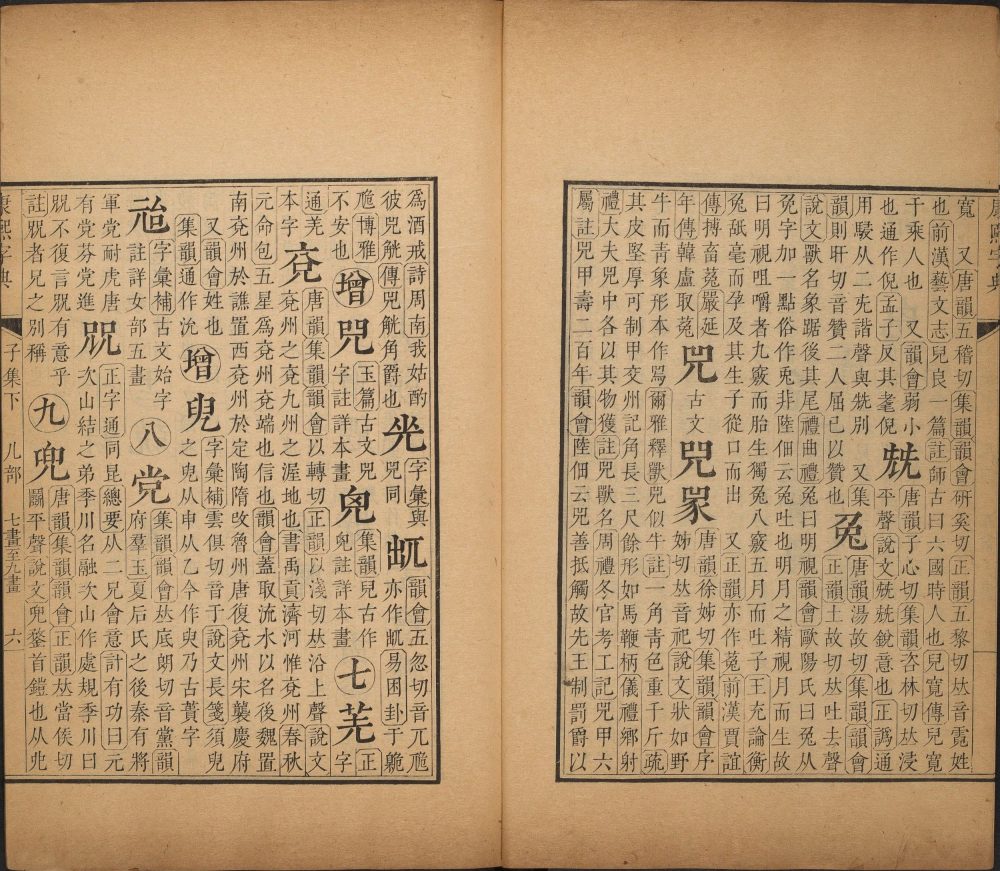 康熙字典
寬　又唐韻五稽切集韻韻會硏奚切正韻五黎切𠀤音霓姓
也前漢藝文志兒良一篇註師古曰六國時人也兒寬傳兒寬
千乘人也　又韻會弱小　兟　唐韻子心切集韻咨林切𠀤浸
也通作倪孟子反其耄倪　平聲說文兟兟銳意也正譌通
用駸从二先諧聲與兟別　又集　兔　唐韻湯故切集韻韻會
韻則旰切音贊二人屈已以贊也　正韻土故切𠀤吐去聲
說文獸名象踞後其尾禮曲禮兔曰明視韻會歐陽氏曰兔从
㝹字加一點俗作兎非陸佃云兔吐也明月之精視月而生故
曰明視咀嚼者九竅而胎生獨兔八竅五月而吐子王充論衡
兔舐毫而孕及其生子從口而出　又正韻亦作菟前漢賈誼
傳搏畜菟嚴延　兕　古文　兕　唐韻徐姊切集韻韻會序
年傳韓盧取菟　姊切𠀤音祀說文狀如野
牛而靑象形本作𤉡爾雅釋獸兕似牛註一角靑色重千斤疏
其皮堅厚可制甲交州記角長三尺餘形如馬鞭柄儀禮鄕射
禮大夫兕中各以其物獲註兕獸名周禮冬官考工記兕甲六
屬註兕甲壽二百年韻會陸佃云兕善抵觸故先王制罰爵以
爲酒戒詩周南我姑酌　字彙與　韻會五忽切音兀卼
彼兕觥傳兕觥角爵也　兕同　亦作　易困卦于臲
卼博雅　增　玉篇古文兕　集韻兒古作　七　芜　正
不安也　字註詳本畫　兒註詳本畫　字
通羌　兖　唐韻集韻韻會以轉切正韻以淺切𠀤沿上聲說文
本字　兖州之兖九州之渥地也書禹貢濟河惟兖州春秋
元命包五星爲兖州兖端也信也韻會蓋取流水以名後魏置
南兖州於譙置西兖州於定陶隋攺魯州唐復兖州宋襲慶府
又韻會姓也　增　字彙補雲俱切音于說文長箋須臾
集韻通作沇　之臾从申从乙今作臾乃古蕢字
兘　字彙補古文始字　八　党　集韻韻會𠀤底朗切音黨韻
註詳女部五畫　府羣玉夏后氏之後秦有將
軍党耐虎唐　正字通同昆總要从二兄會意計有功曰元
有党芬党進　次山結之弟季川名融次山作處規季川曰
不復言　有意乎　九　兜　唐韻集韻韻會正韻𠀤當侯切
註　者兄之別稱　鬭平聲說文兜鍪首鎧也从
康熙字典　子集下　儿部　七畫至九畫　六